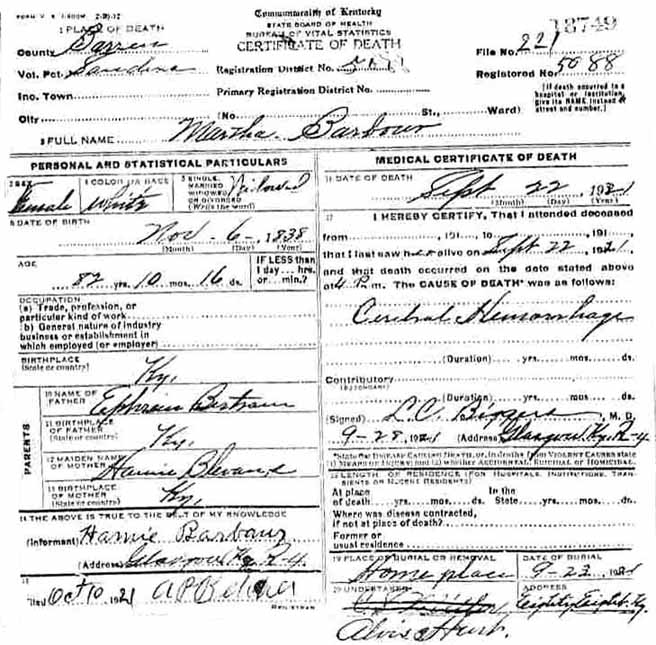 FORM V. S. 1-150M 2-20-12
Commonwealth of Kentucky
STATE BOARD OF HEALTH
BUREAU OF VITAL STATISTICS
CERTIFICATE OF DEATH
18749
1 PLACE OF DEATH
County Barren
File No. 221
Vot. Pct.
Registration District No.
Registered No. 5088
Inc. Town
Primary Registration District No.
[If death occurred in a hospital or institution, give its NAME instead of street and number.]
City (No. St., Ward)
2 FULL NAME Martha Barbour
PERSONAL AND STATISTICAL PARTICULARS
3 SEX Female
4 COLOR OR RACE White
5 SINGLE, MARRIED, WIDOWED OR DIVORCED (Write the word) Widowed
6 DATE OF BIRTH Nov - 6 - 1838
(Month) (Day) (Year)
AGE 82 yrs. 10 mos. 16 ds.
IF LESS than 1 day... hrs. or... min.?
OCCUPATION
(a) Trade, profession, or particular kind of work
(b) General nature of industry business or establishment in which employed (or employer)
BIRTHPLACE (State or country) Ky.
PARENTS
10 NAME OF FATHER Ephraim Bertram
11 BIRTHPLACE OF FATHER (State or country) Ky.
12 MAIDEN NAME OF MOTHER
13 BIRTHPLACE OF MOTHER (State or country) Ky.
14 THE ABOVE IS TRUE TO THE BEST OF MY KNOWLEDGE
(Informant) Barbour
(Address) Glasgow Ky R-4
15
Filed Oct 10 1921
REGISTRAR
MEDICAL CERTIFICATE OF DEATH
16 DATE OF DEATH Sept 22, 1921
(Month) (Day) (Year)
17 I HEREBY CERTIFY, That I attended deceased
from , 191 , to , 191 ,
that I last saw her alive on Sept 22, 1921,
and that death occurred on the date stated above
at 4 P. m. The CAUSE OF DEATH* was as follows:
Cerebral Hemorrhage
(Duration) yrs. mos. ds.
Contributory
(SECONDARY)
(Duration) yrs. mos. ds.
(Signed) L. C. Biggers, M. D.
9-28 1921 (Address) Glasgow Ky R-4
*State the DISEASE CAUSING DEATH, or, in deaths from VIOLENT CAUSES state (1) MEANS OF INJURY; and (2) whether ACCIDENTAL, SUICIDAL or HOMICIDAL.
18 LENGTH OF RESIDENCE (FOR HOSPITALS, INSTITUTIONS, TRANSIENTS OR RECENT RESIDENTS)
At place of death yrs. mos. ds. In the State yrs. mos. ds.
Where was disease contracted, if not at place of death?
Former or usual residence
19 PLACE OF BURIAL OR REMOVAL Home place
DATE OF BURIAL 9-23 1921
20 UNDERTAKER
ADDRESS Eighty Eight, Ky